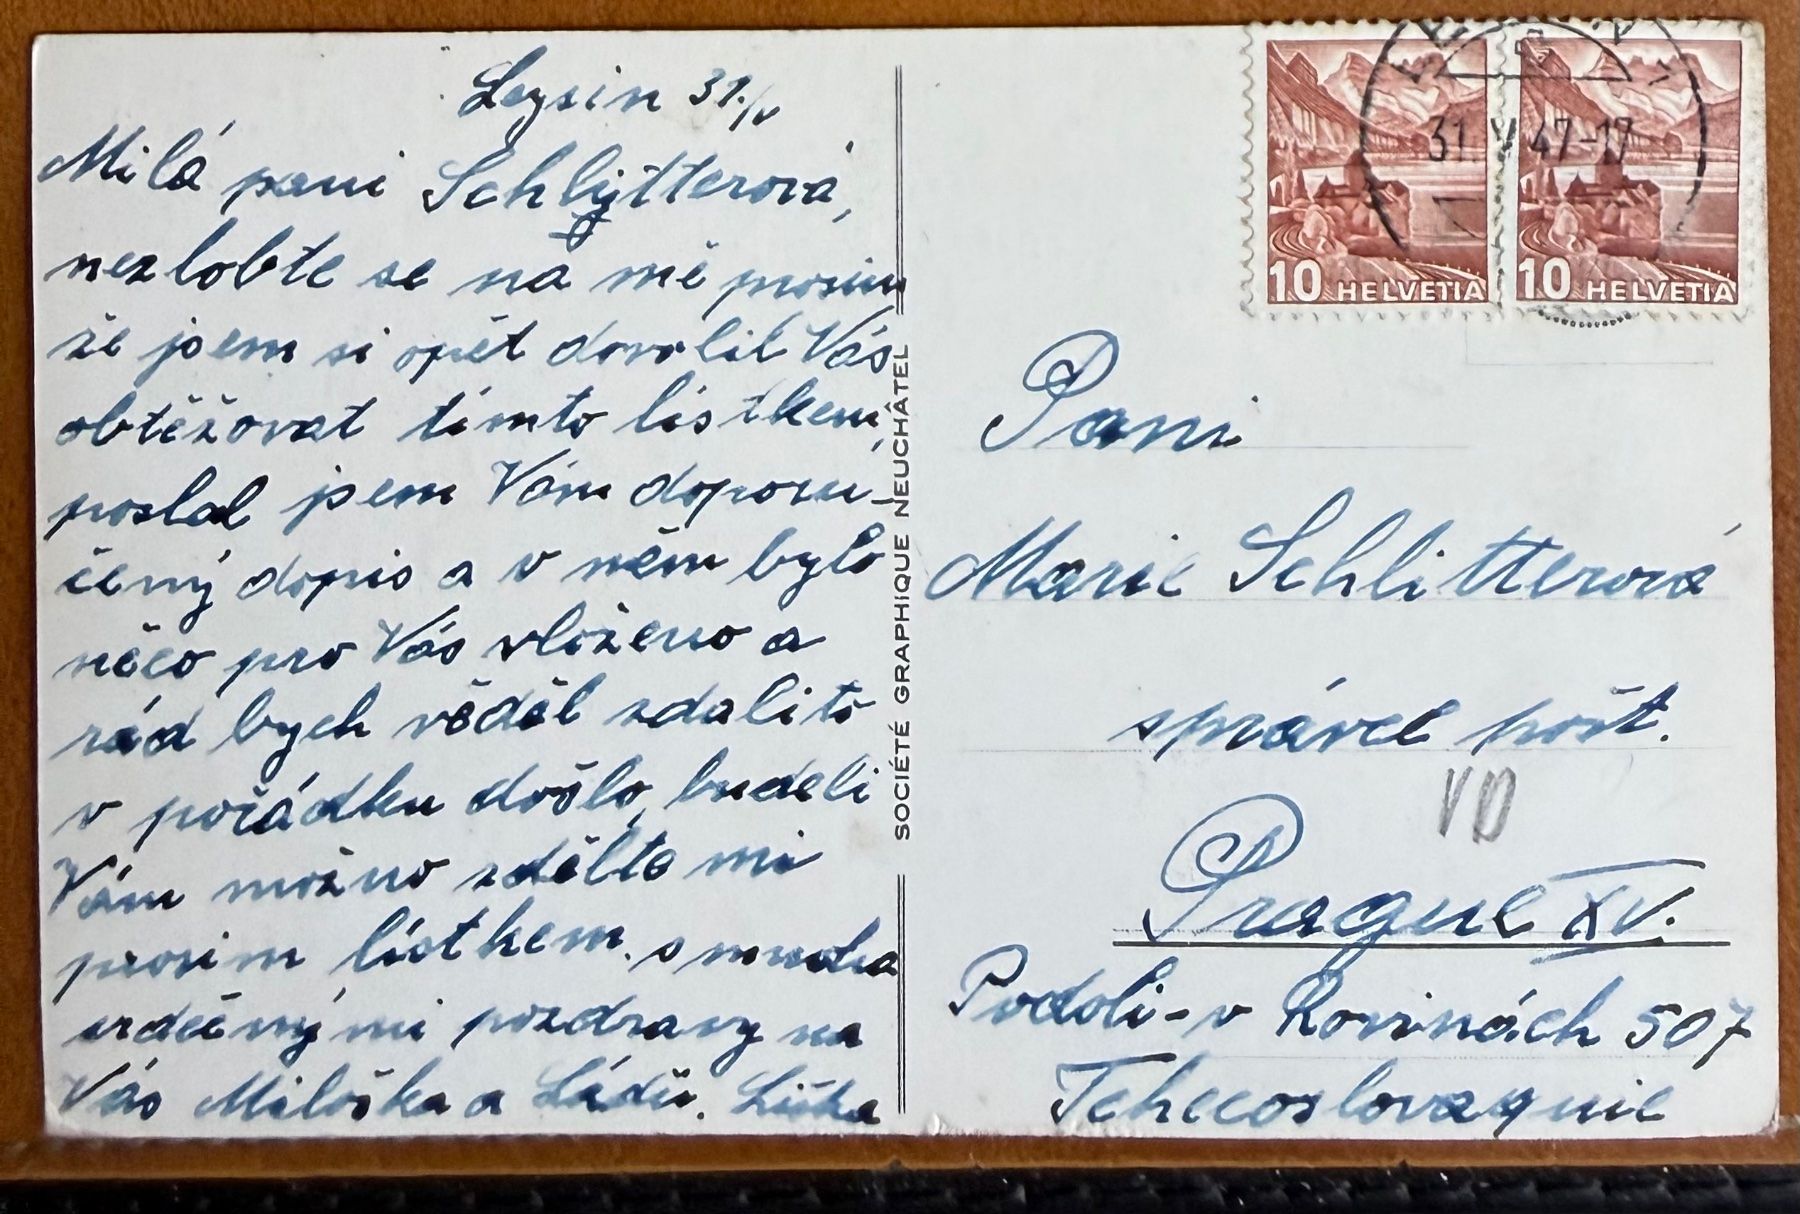 Leysin 31./V
Milá paní Schlytterová,
nezlobte se na mě prosim
že jsem si opět dovolil Vás
obtěžovat tímto lístkem,
poslal jsem Vám doporu-
čený dopis a v něm bylo
něco pro Vás vloženo a
rád bych věděl zdali to
v pořádku došlo, budeli
Vám možno zdělte mi
prosim lístkem. s mnoha
srdečnými pozdravy na
Vás Miloška a Láďu. Liška
SOCIÉTÉ GRAPHIQUE NEUCHÂTEL
31. V 47-17
10 HELVETIA
10 HELVETIA
Pani
Marie Schlitterová
správce pošt.
VD
Prague XV.
Podoli - v Rovinách 507
Tchecoslovaquie